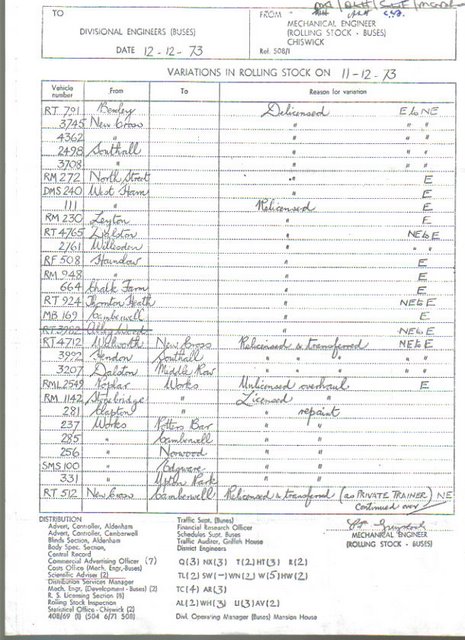 TO
DIVISIONAL ENGINEERS (BUSES)
DATE 12-12-73
FROM
MECHANICAL ENGINEER
(ROLLING STOCK - BUSES)
CHISWICK
Ref. 508/1
VARIATIONS IN ROLLING STOCK ON 11-12-73
Vehicle number From To Reason for variation
RT 791 Bexley Delicensed E to NE
3745 New Cross " " "
4362 " " " "
2498 Southall " " "
3708 " " " "
RM 272 North Street " E
DMS 240 West Ham " E
111 " Relicensed E
RM 230 Leyton " E
RT 4765 Dalston " NE to E
2761 Willesden " " "
RF 508 Hounslow " E
RM 948 " " E
664 Chalk Farm " E
RT 924 Thornton Heath " NE to E
MB 169 Camberwell " E
RT 3982 Abbey Wood " NE to E
RT 4712 Walworth New Cross Relicensed & transferred NE to E
3992 Hendon Southall " " " " "
3207 Dalston Middle Row " " " " "
RML 2549 Poplar Works Unlicensed overhaul E
RM 1142 Stonebridge " Licensed " "
281 Clapton " " repaint
237 Works Potters Bar " "
285 " Camberwell " "
256 " Norwood " "
SMS 100 " Edgware " "
331 " Upton Park " "
RT 512 New Cross Camberwell Relicensed & transferred (as PRIVATE TRAINER) NE
Continued over
DISTRIBUTION
Advert. Controller, Aldenham
Advert. Controller, Camberwell
Blinds Section, Aldenham
Body Spec. Section,
Central Record
Commercial Advertising Officer (7)
Costs Office (Mech. Engr.-Buses)
Scientific Adviser (2)
Distribution Services Manager
Mech. Engr. (Development - Buses) (2)
R. S. Licensing Section (6)
Rolling Stock Inspection
Statistical Office - Chiswick (2)
408/69 (1) (504 6/71 508)
Traffic Supt. (Buses)
Financial Research Officer
Schedules Supt. Buses
Traffic Auditor, Griffith House
District Engineers
Q(3) NX(3) T(2) HT(3) R(2)
TL(2) SW(-) WN(2) W(5) HW(2)
TC(4) AR(3)
AL(2) WH(3) U(3) AV(2)
Divl. Operating Manager (Buses) Mansion House
MECHANICAL ENGINEER
(ROLLING STOCK - BUSES)